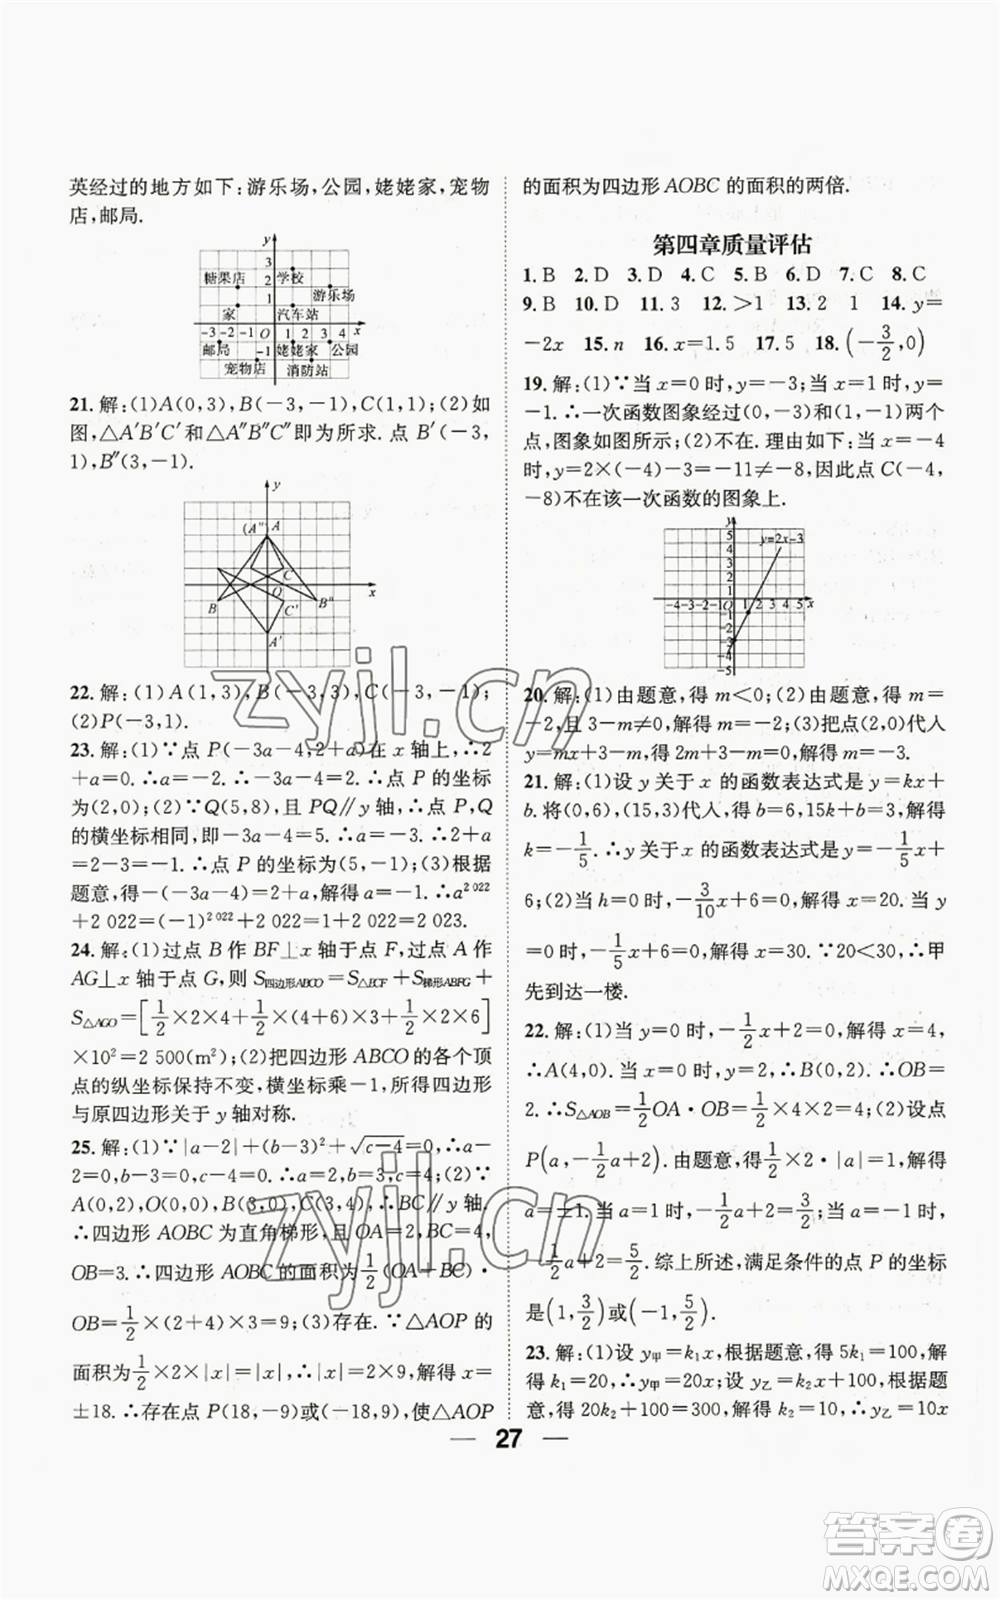 英经过的地方如下:游乐场,公园,姥姥家,宠物
店,邮局.
y
3
糖果店 2 学校
1 游乐场
家 汽车站
-3 -2 -1 O 1 2 3 4 x
邮局 -1 姥姥家 公园
宠物店 消防站
21. 解:(1)A(0,3),B(-3,-1),C(1,1);(2)如
图,△A′B′C′和△A″B″C″即为所求.点 B′(-3,
1),B″(3,-1).
y
(A″) A
C
O x
B C′ B″
A′
22. 解:(1)A(1,3),B(-3,3),C(-3,-1);
(2)P(-3,1).
23. 解:(1)∵点 P(-3a-4,2+a)在 x 轴上,∴2
+a=0.∴a=-2.∴-3a-4=2.∴点 P 的坐标
为(2,0);(2)∵Q(5,8),且 PQ∥y 轴,∴点 P,Q
的横坐标相同,即-3a-4=5.∴a=-3.∴2+a
=2-3=-1.∴点 P 的坐标为(5,-1);(3)根据
题意,得-(-3a-4)=2+a,解得 a=-1.∴a²⁰²²
+2 022=(-1)²⁰²²+2 022=1+2 022=2 023.
24. 解:(1)过点 B 作 BF⊥x 轴于点 F,过点 A 作
AG⊥x 轴于点 G,则 S四边形ABCO=S△BCF+S梯形ABFG+
S△AGO=[1/2×2×4+1/2×(4+6)×3+1/2×2×6]
×10²=2 500(m²);(2)把四边形 ABCO 的各个顶
点的纵坐标保持不变,横坐标乘-1,所得四边形
与原四边形关于 y 轴对称.
25. 解:(1)∵|a-2|+(b-3)²+√(c-4)=0,∴a-
2=0,b-3=0,c-4=0.∴a=2,b=3,c=4;(2)∵
A(0,2),O(0,0),B(3,0),C(3,4),∴BC∥y 轴.
∴四边形 AOBC 为直角梯形,且 OA=2,BC=4,
OB=3.∴四边形 AOBC 的面积为1/2(OA+BC)·
OB=1/2×(2+4)×3=9;(3)存在.∵△AOP 的
面积为1/2×2×|x|=|x|,∴|x|=2×9,解得 x=
±18.∴存在点 P(18,-9)或(-18,9),使△AOP
的面积为四边形 AOBC 的面积的两倍.
第四章质量评估
1. B 2. D 3. D 4. C 5. B 6. D 7. C 8. C
9. B 10. D 11. 3 12. >1 13. 2 1 14. y=
-2x 15. n 16. x=1.5 17. 5 18. (-3/2,0)
19. 解:(1)∵当 x=0 时,y=-3;当 x=1 时,y=
-1.∴一次函数图象经过(0,-3)和(1,-1)两个
点,图象如图所示;(2)不在.理由如下:当 x=-4
时,y=2×(-4)-3=-11≠-8,因此点 C(-4,
-8)不在该一次函数的图象上.
y
5
4 y=2x-3
3
2
1
-4-3-2-1 O 1 2 3 4 5 x
-1
-2
-3
-4
-5
20. 解:(1)由题意,得 m<0;(2)由题意,得 m=
-2,且 3-m≠0,解得 m=-2;(3)把点(2,0)代入
y=mx+3-m,得 2m+3-m=0,解得 m=-3.
21. 解:(1)设 y 关于 x 的函数表达式是 y=kx+
b.将(0,6),(15,3)代入,得 b=6,15k+b=3,解得
k=-1/5.∴y 关于 x 的函数表达式是 y=-1/5x+
6;(2)当 h=0 时,-3/10x+6=0,解得 x=20.当 y
=0 时,-1/5x+6=0,解得 x=30.∵20<30,∴甲
先到达一楼.
22. 解:(1)当 y=0 时,-1/2x+2=0,解得 x=4,
∴A(4,0).当 x=0 时,y=2,∴B(0,2).∴OB=
2.∴S△AOB=1/2OA·OB=1/2×4×2=4;(2)设点
P(a,-1/2a+2).由题意,得1/2×2·|a|=1,解得
a=±1.当 a=1 时,-1/2a+2=3/2;当 a=-1 时,
-1/2a+2=5/2.综上所述,满足条件的点 P 的坐标
是(1,3/2)或(-1,5/2).
23. 解:(1)设 y甲=k₁x,根据题意,得 5k₁=100,解
得 k₁=20,∴y甲=20x;设 y乙=k₂x+100,根据题
意,得 20k₂+100=300,解得 k₂=10,∴y乙=10x
27
zyjl.cn
zyjl.cn
答案圈
MXQE.COM